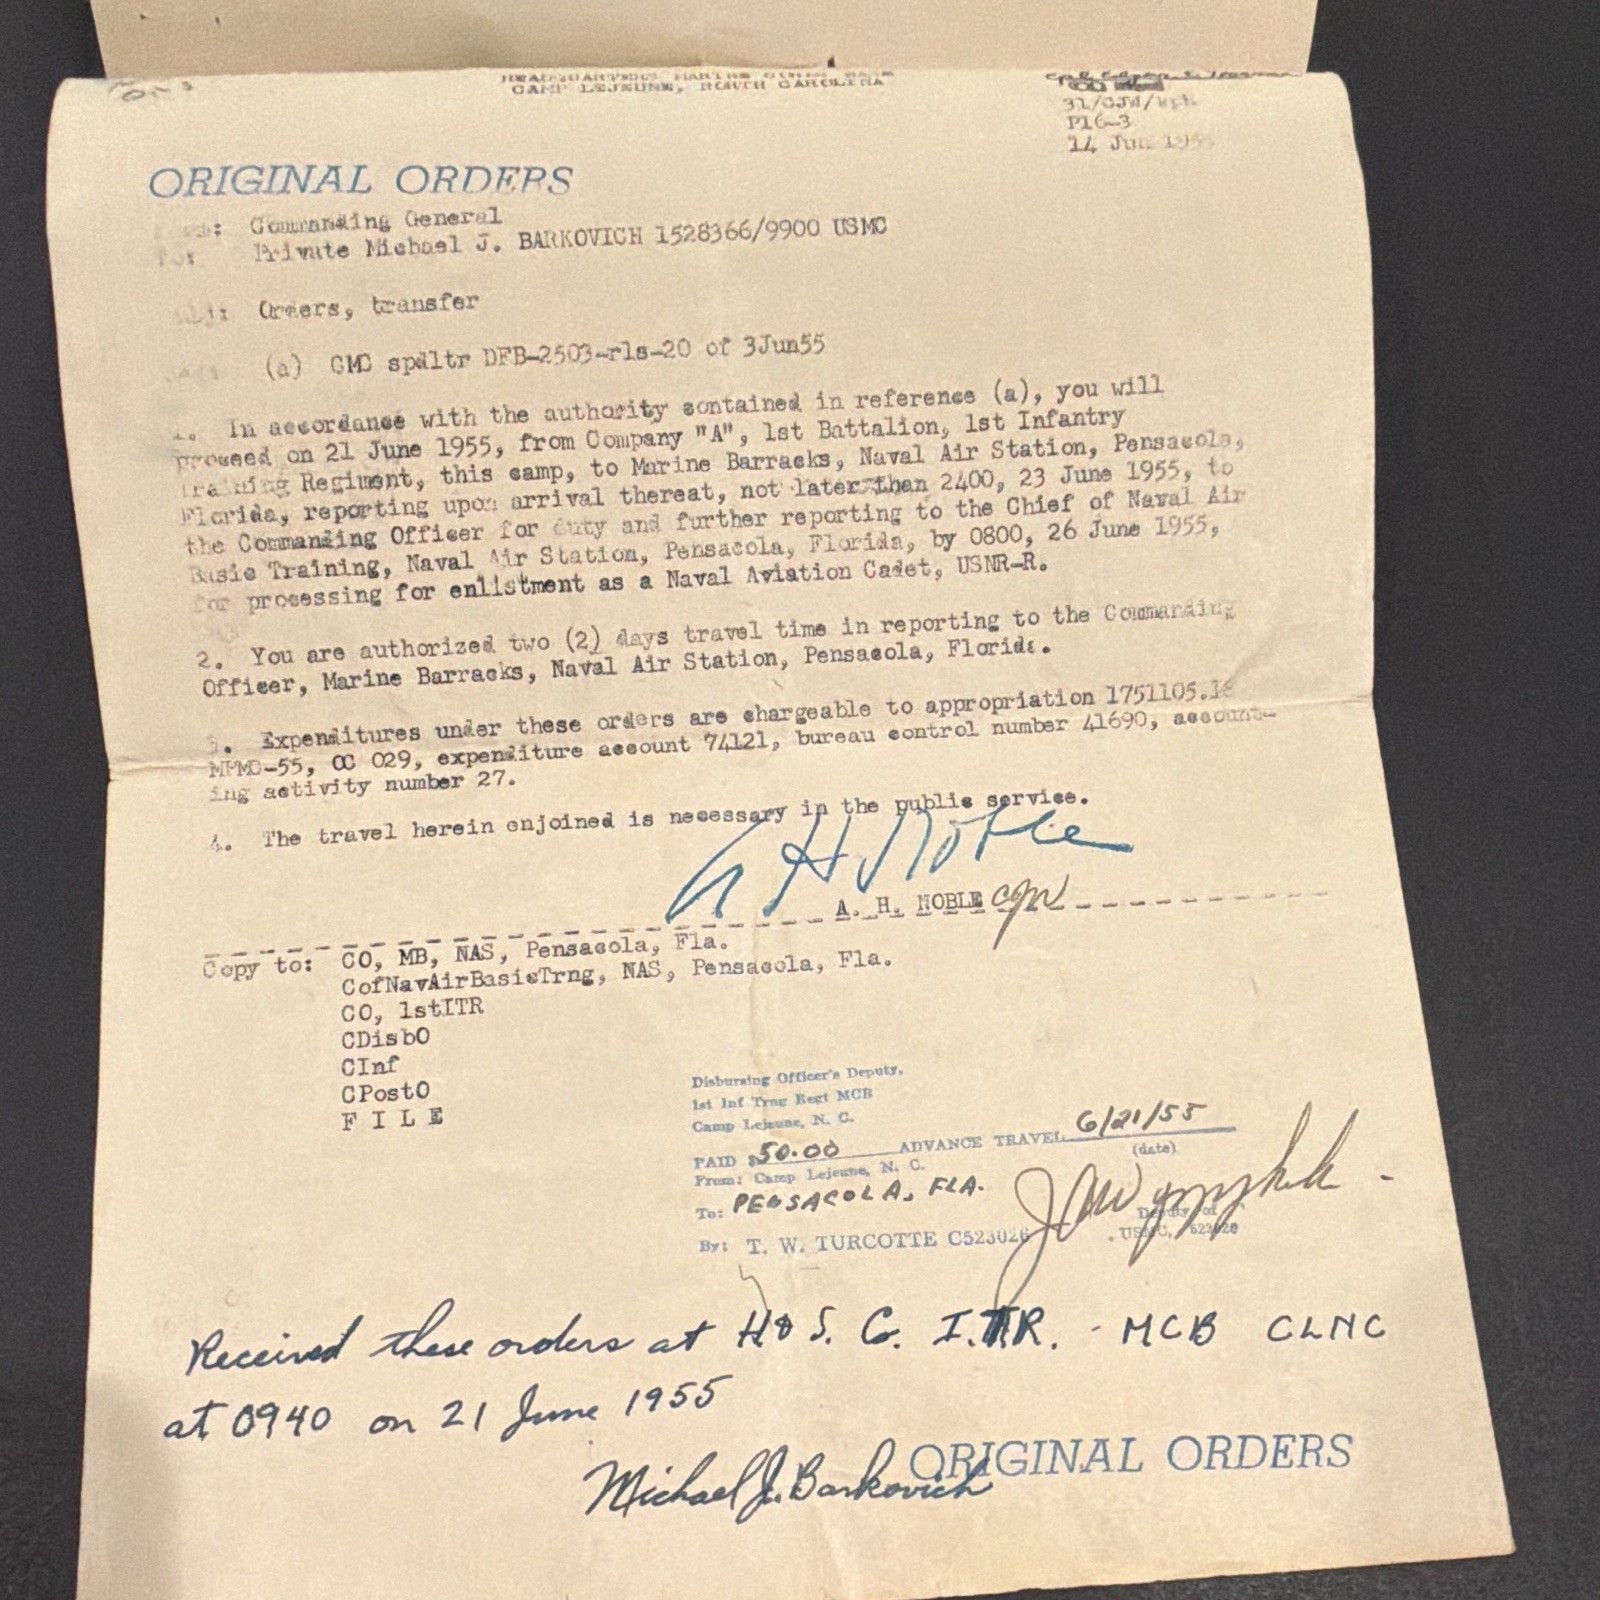 HEADQUARTERS MARINE CORPS BASE
CAMP LEJEUNE, NORTH CAROLINA
31/CJW/
P16-3
14 Jun 1955
ORIGINAL ORDERS
Commanding General
To: Private Michael J. BARKOVICH 1528366/9900 USMC
Subj: Orders, transfer
(a) CMC spdltr DFB-2503-rls-20 of 3Jun55
1. In accordance with the authority contained in reference (a), you will
proceed on 21 June 1955, from Company "A", 1st Battalion, 1st Infantry
Training Regiment, this camp, to Marine Barracks, Naval Air Station, Pensacola,
Florida, reporting upon arrival thereat, not later than 2400, 23 June 1955, to
the Commanding Officer for duty and further reporting to the Chief of Naval Air
Basic Training, Naval Air Station, Pensacola, Florida, by 0800, 26 June 1955,
for processing for enlistment as a Naval Aviation Cadet, USNR-R.
2. You are authorized two (2) days travel time in reporting to the Commanding
Officer, Marine Barracks, Naval Air Station, Pensacola, Florida.
3. Expenditures under these orders are chargeable to appropriation
MPMC-55, OC 029, expenditure account 74121, bureau control number 41690, account-
ing activity number 27.
4. The travel herein enjoined is necessary in the public service.
A H Noble
A. H. NOBLE
Copy to: CO, MB, NAS, Pensacola, Fla.
CofNavAirBasicTrng, NAS, Pensacola, Fla.
CO, 1stITR
CDisbO
CInf
CPostO
F I L E
Disbursing Officer's Deputy,
1st Inf Trng Regt MCB
Camp Lejeune, N. C.
PAID $50.00 ADVANCE TRAVEL 6/21/55
(date)
From: Camp Lejeune, N. C.
To: PENSACOLA, FLA.
Deputy of
By: T. W. TURCOTTE C523026 USMC, 523026
Received these orders at H & S. Co. I.T.R. - MCB CLNC
at 0940 on 21 June 1955
Michael J. Barkovich
ORIGINAL ORDERS